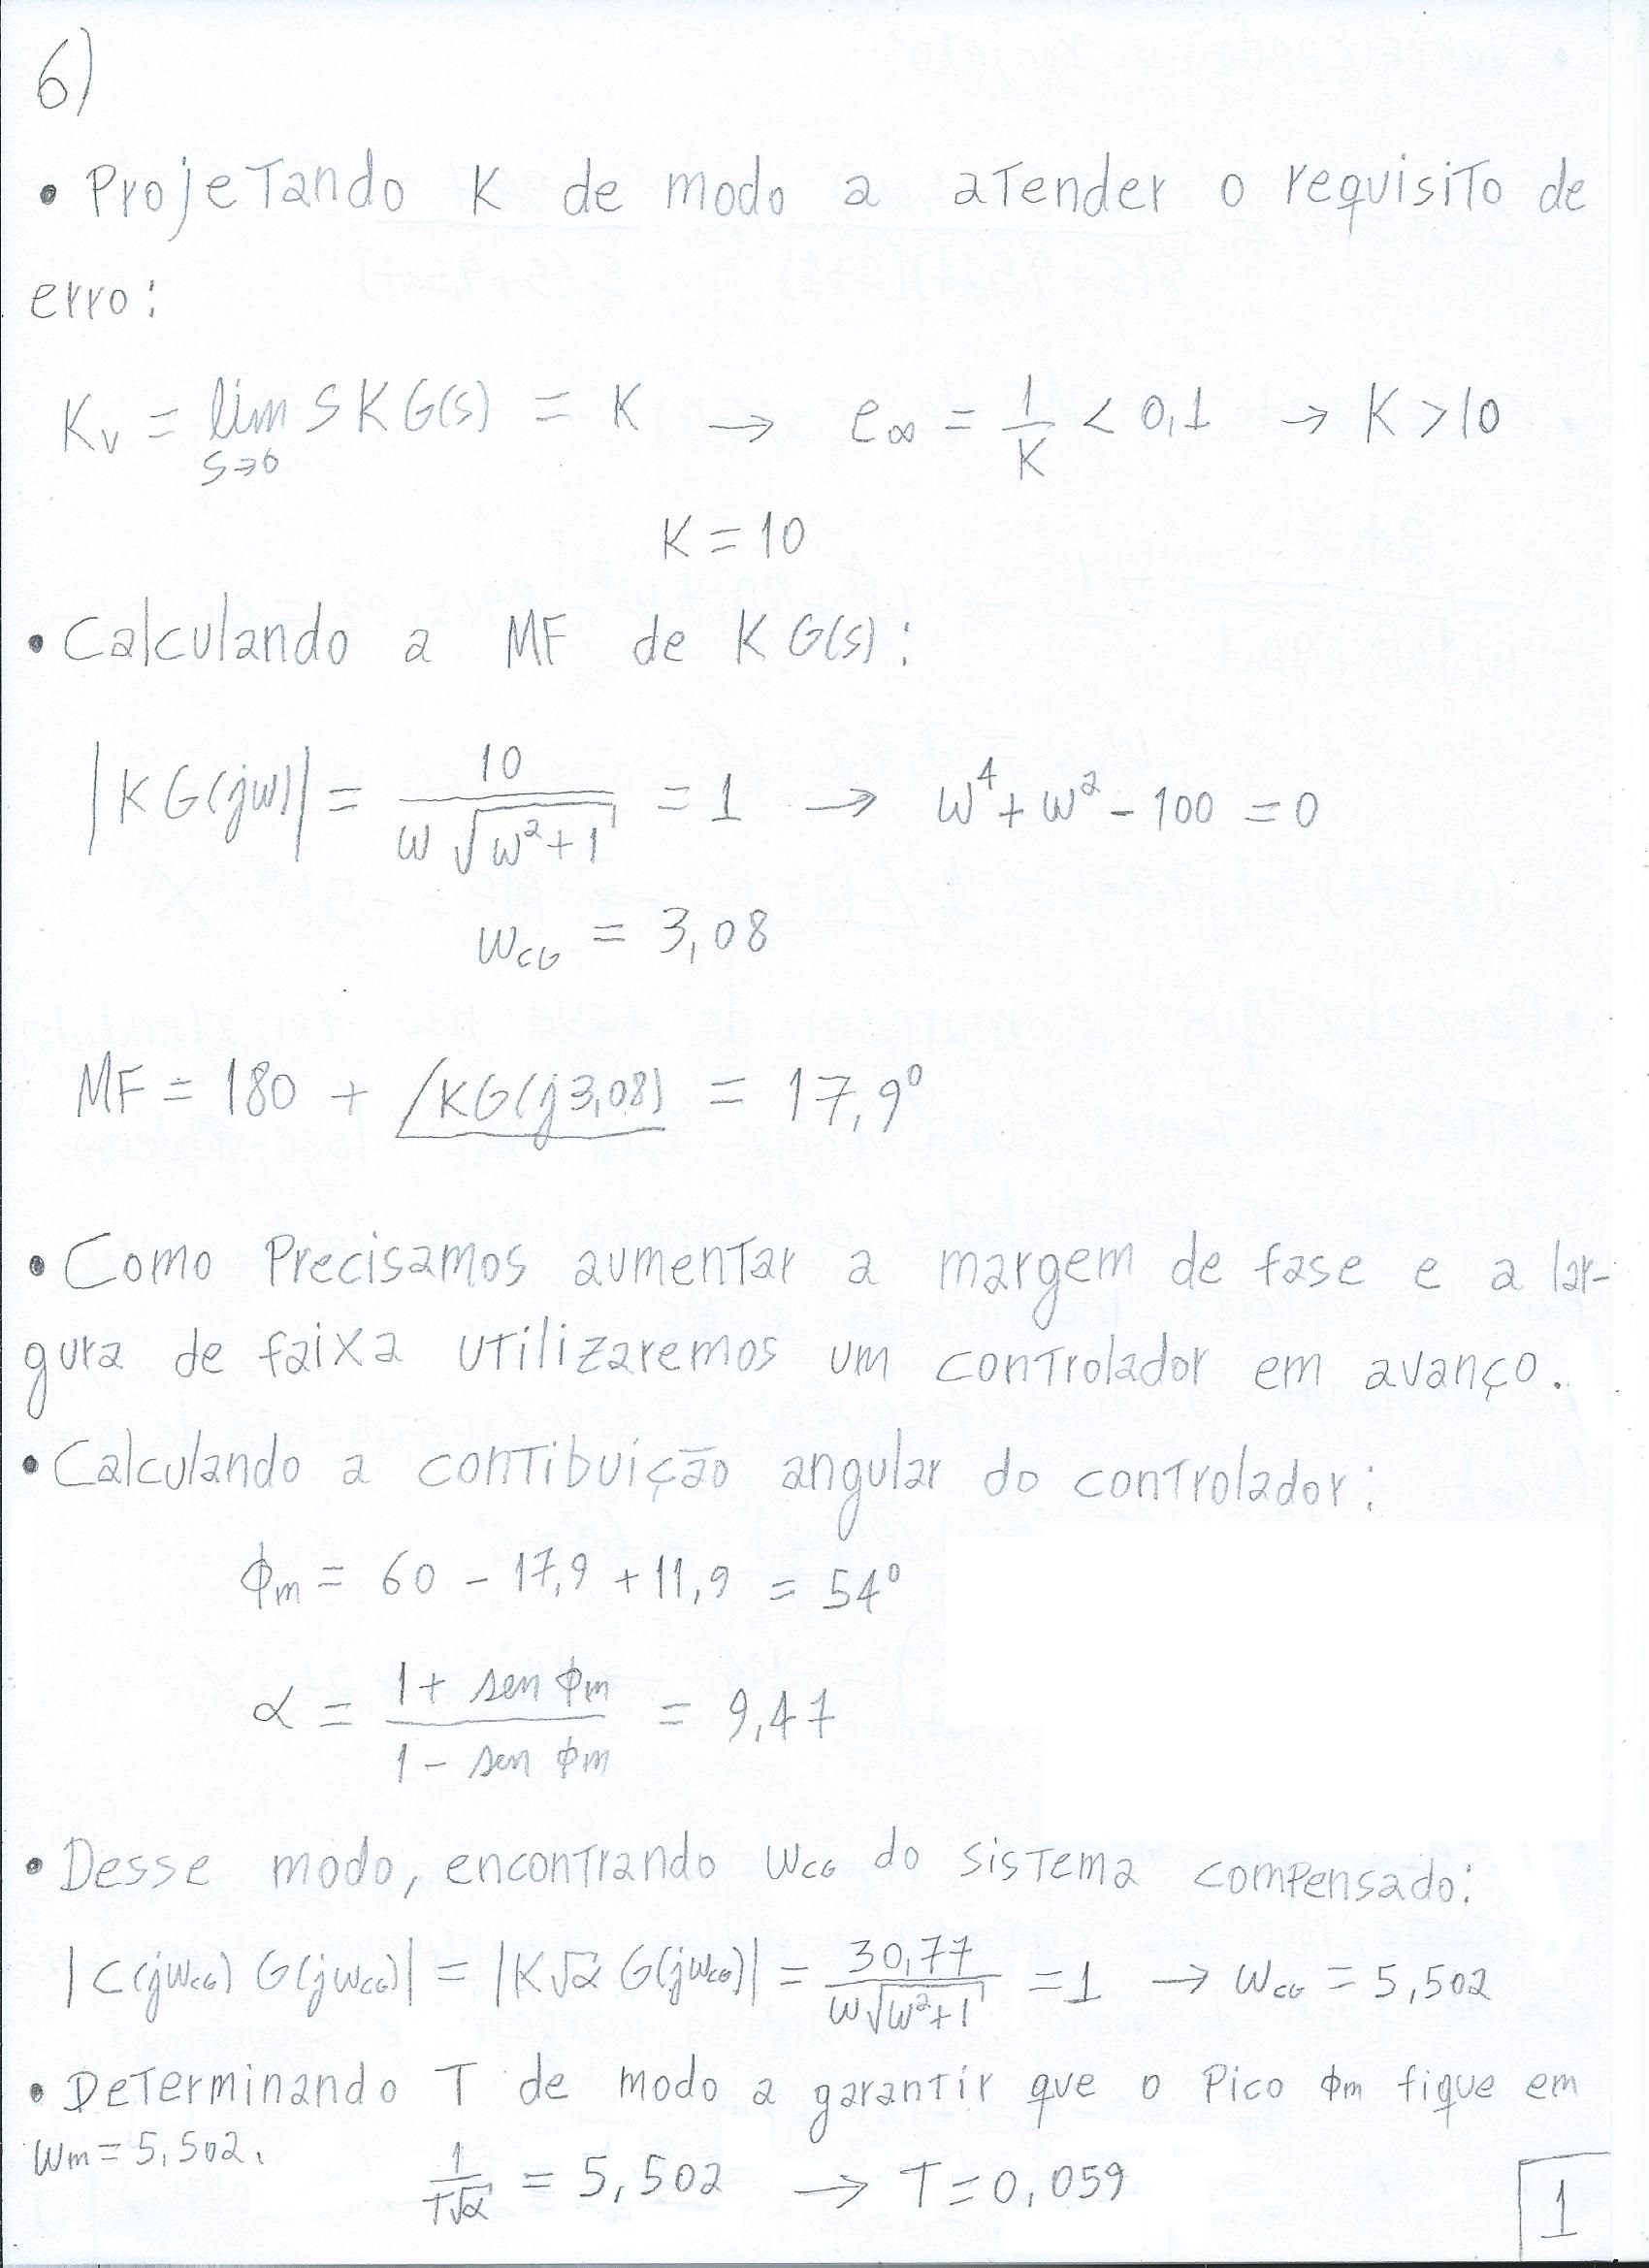 6)
• Projetando K de modo a atender o requisito de
erro:
Kv = lim s→0 S K G(s) = K → e∞ = 1/K < 0,1 → K > 10
K = 10
• Calculando a MF de K G(s):
|K G(jw)| = 10 / (w √(w²+1)) = 1 → w⁴ + w² - 100 = 0
wCG = 3,08
MF = 180 + ∠KG(j3,08) = 17,9°
• Como Precisamos aumentar a margem de fase e a lar-
gura de faixa utilizaremos um controlador em avanço.
• Calculando a contibuição angular do controlador:
ϕm = 60 - 17,9 + 11,9 = 54°
α = (1 + sen ϕm) / (1 - sen ϕm) = 9,47
• Desse modo, encontrando wCG do sistema compensado:
|C(jwCG) G(jwCG)| = |K√α G(jwCG)| = 30,77 / (w√(w²+1)) = 1 → wCG = 5,502
• Determinando T de modo a garantir que o Pico ϕm fique em
wm = 5,502.
1/(T√α) = 5,502 → T = 0,059
1